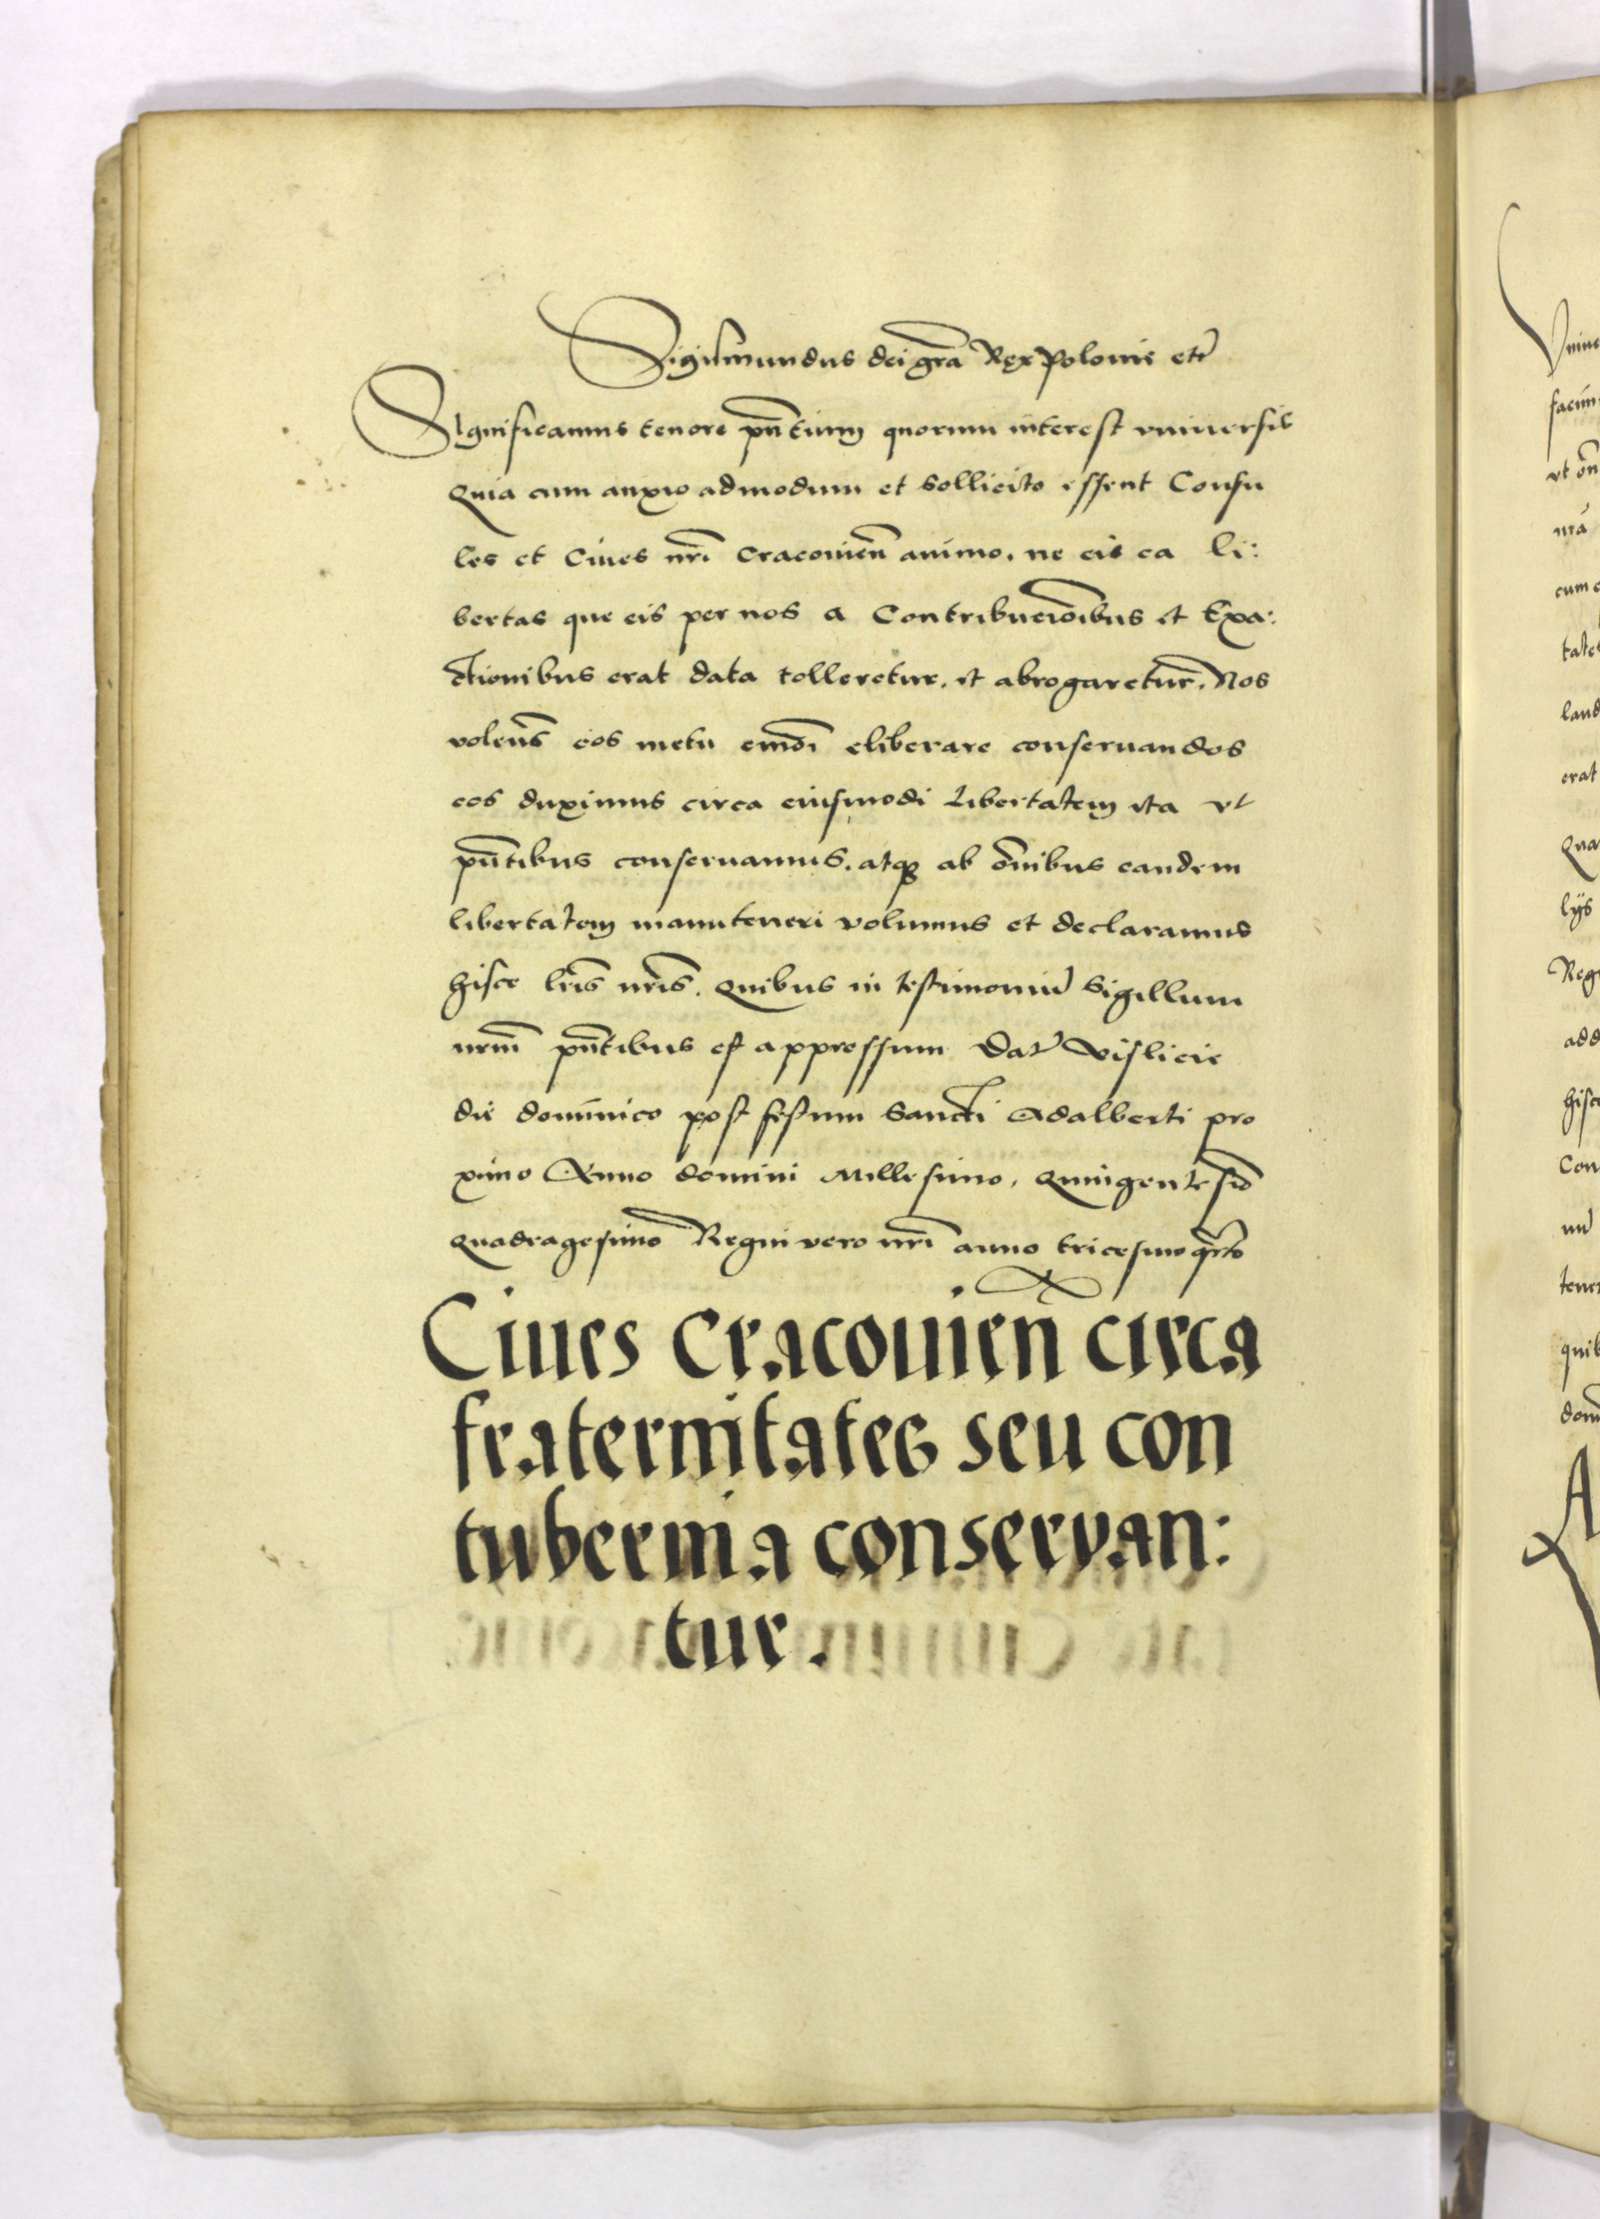 Sigismundus dei gr̃a Rex Polonie etc̃
SIgnificamus tenore pñtium quorum interest vniuersis
Quia cum anxio admodum et sollicito essent Consu
les et Ciues nr̃i Cracouień animo, ne eis ea li:
bertas que eis per nos a Contribucioībus et Exa:
ctionibus erat data tolleretur, et abrogaretur. Nos
voleñs eos metu eiuṡmōi eliberare conseruandos
eos duximus circa eiusmodi libertatem ita vt
pñtibus conseruamus, atq₃ ab oĩnibus eandem
libertatem manuteneri volumus et declaramus
hisce lr̃is nr̃is. Quibus in testimoniũ Sigillum
nrm̃ pñtibus est appressum Dat̃ Vislicię
die dominico post festum Sancti Adalberti pro
ximo Anno domini Millesimo, Quingentesiõ
Quadragesimo Regni vero nr̃i anno tricesimo qr̃to
Ciues Cracouień circa
fraternitates seu con
tubernia conservan:
tur.